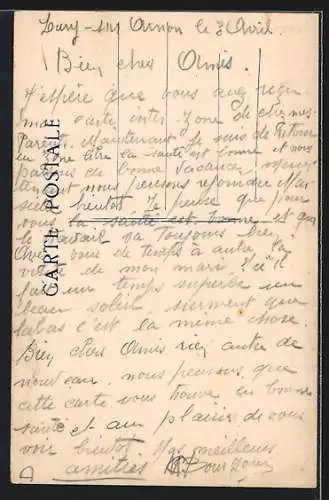 Lury-sur Arnon le 3 Avril.
Bien chers Amis.
J'espère que vous avez reçu
ma carte inter-Zone de chez mes
Parents. Maintenant Je suis de retour
la santé est bonne et nous
passons de bonne vacances,
nous pensons rejoindre Mar
seille bientôt. Je pense que pour
vous la santé est bonne et que
le travail va toujours bien.
Avez vous de temps à autre la
visite de mon mari. Ici il
fait un temps superbe un
beau soleil, sûrement que
labas c'est la même chose.
Bien chers Amis rien autre de
nouveau, nous pensons que
cette carte vous trouve en bonne
santé et au plaisir de vous
voir bientôt. Vos meilleurs
amitiés
CARTE POSTALE